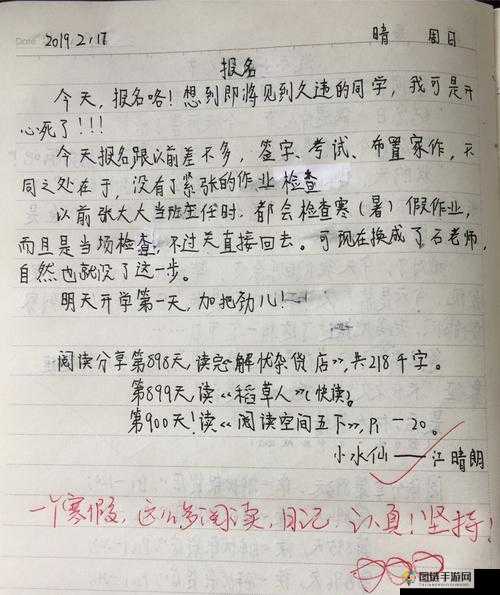 2019.2.17 晴 周日
报名
今天,报名咯!想到即将见到久违的同学,我可是开
心死了!!!
今天报名跟以前差不多,签字、考试、布置家作,不
同之处在于,没有了紧张的作业检查
以前张大大当班主任时.都会检查寒(暑)假作业,
而且是当场检查,不过关直接回去。可现在换成了石老师,
自然也就没了这一步。
明天开学第一天,加把劲儿!
阅读分享第898天,读完《解忧杂货店》,共218千字。
第899天,读《稻草人》(快读)。
第900天!读《阅读空间五下》,P1—20。
小水仙——江晴朗
一个寒假,这么多阅读,日记,认真!坚持!
图链手游网